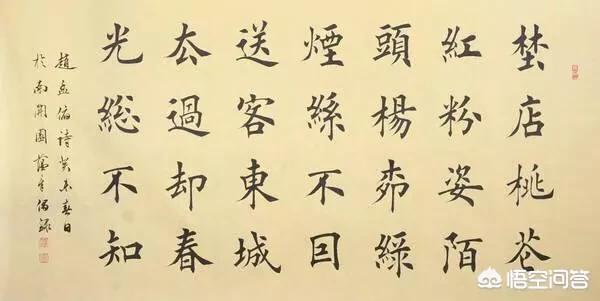 埜店桃花
紅粉姿陌
頭楊柳綠
煙絲不因
送客東城
去過却春
光總不知
趙孟俯詩癸未春日
於南開園偶錄
悟空问答